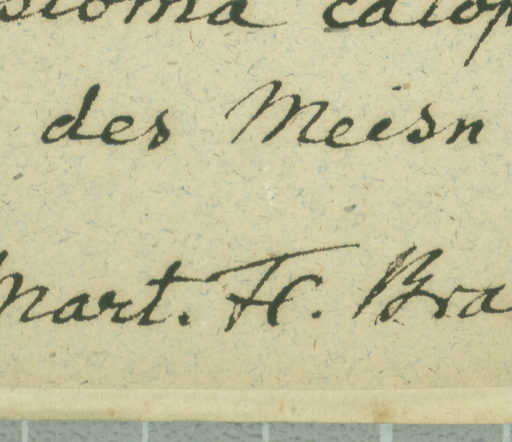 stoma calop
des Meisn
Mart. Fl. Bra